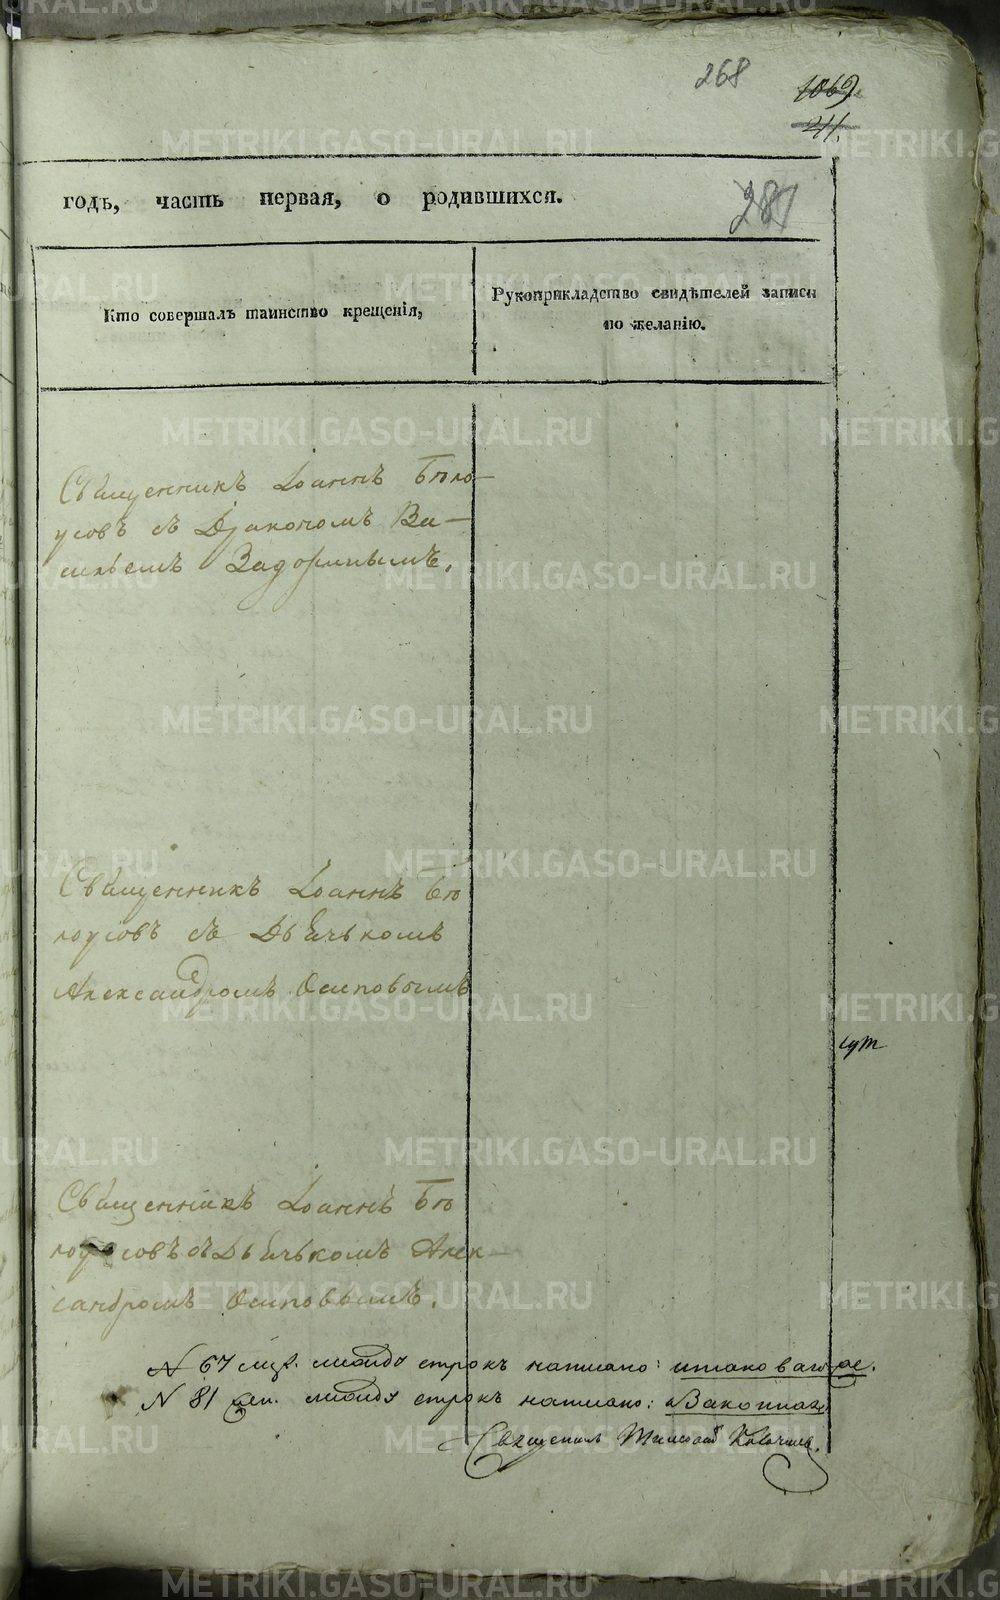 268
1069
211.
годъ, часть первая, о родившихся.
281
Кто совершалъ таинство крещенія,
Рукоприкладство свидѣтелей записи
по желанію.
Священникъ Іоаннъ Бѣло-
усовъ съ Діакономъ Ва-
сильемъ Задоринымъ.
Священникъ Іоаннъ Бѣ
лоусовъ съ Дьячькомъ
Александромъ Осиповымъ
Священникъ Іоаннъ Бѣ
лоусовъ съ Дьячькомъ Алек-
сандромъ Осиповымъ.
N 67 между строкъ написано:
N 81 между строкъ написано:
Священникъ
METRIKI.GASO-URAL.RU